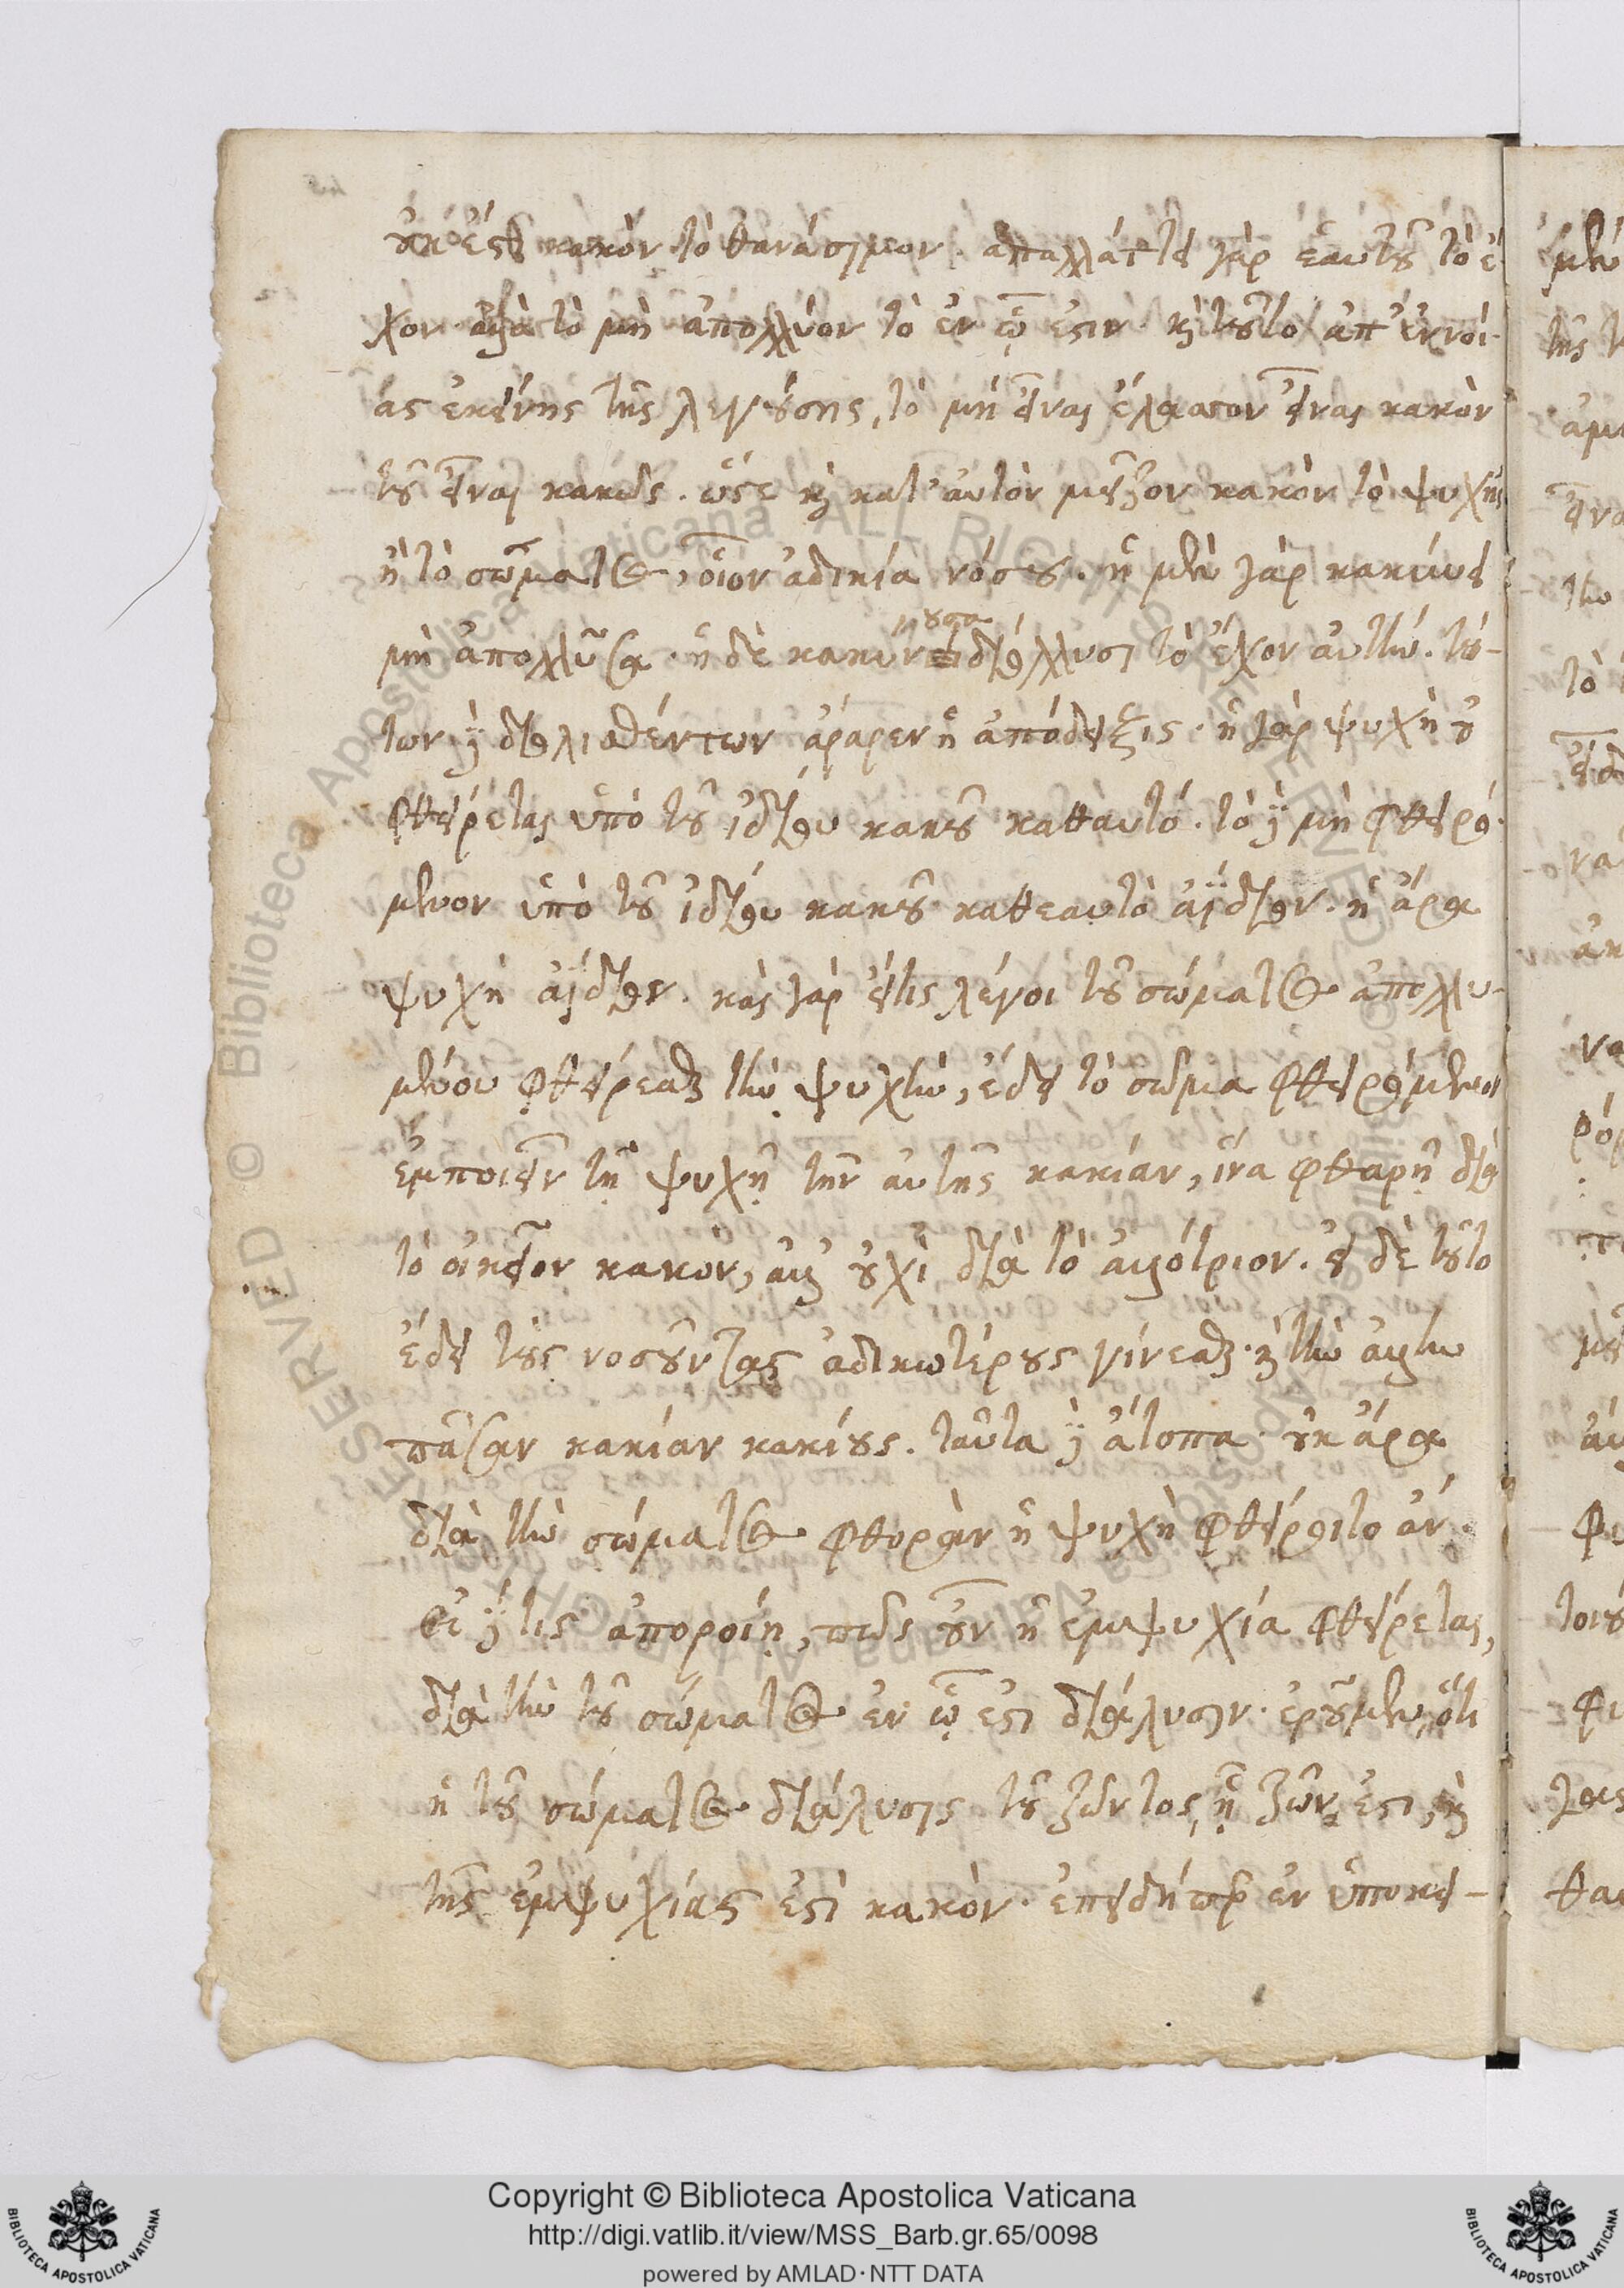 οὐκ ἔστι κακὸν τὸ θανάσιμον· ἀπαλλάττει γὰρ ἑαυτοῦ τὸ ἔ-
χον· ἀλλὰ τὸ μὴ ἀπολλύον τὸ ἐν ᾧ ἐστιν· καὶ τοῦτο ἀπ' ἐννοί-
ας ἐκείνης τῆς λεγούσης, τὸ μὴ εἶναι ἔλαττον εἶναι κακὸν
τοῦ εἶναι κακῶς. ὥστε καὶ κατ' αὐτὸν μεῖζον κακὸν τὸ ψυχῆς
ἢ τὸ σώματος, οἷον ἀδικία νόσου. ἡ μὲν γὰρ κακύνει
μὴ ἀπολλῦσα· ἡ δὲ κακύνουσα διόλλυσι τὸ ἔχον αὐτήν. τού-
των δὲ διομολογηθέντων ἄραρεν ἡ ἀπόδειξις· ἡ γὰρ ψυχὴ οὐ
φθείρεται ὑπὸ τοῦ ἰδίου κακοῦ καθ' αὑτό. τὸ δὲ μὴ φθειρό-
μενον ὑπὸ τοῦ ἰδίου κακοῦ καθ' ἑαυτὸ ἀΐδιον. ἡ ἄρα
ψυχὴ ἀΐδιον. κἂν γὰρ εἴ τις λέγοι τοῦ σώματος ἀπολλυ-
μένου φθείρεσθαι τὴν ψυχήν, ἔδει τὸ σῶμα φθειρόμενον
ἐμποιεῖν τῇ ψυχῇ τὴν αὐτῆς κακίαν, ἵνα φθαρῇ διὰ
τὸ οἰκεῖον κακόν, ἀλλ' οὐχὶ διὰ τὸ ἀλλότριον. εἰ δὲ τοῦτο
ἔδει τοὺς νοσοῦντας ἀδικωτέρους γίνεσθαι· καὶ τὴν ἄλλην
πᾶσαν κακίαν κακίους. ταῦτα δὲ ἄτοπα· οὐκ ἄρα
διὰ τὴν σώματος φθορὰν ἡ ψυχὴ φθείροιτο ἄν.
εἰ δέ τις ἀποροίη, πῶς οὖν ἡ ἐμψυχία φθείρεται,
διὰ τὴν τοῦ σώματος ἐν ᾧ ἐστι διάλυσιν· ἐροῦμεν, ὅτι
ἡ τοῦ σώματος διάλυσις τοῦ ζῶντος, ᾗ ζῶν ἐστι, καὶ
τῆς ἐμψυχίας ἐστὶ κακόν· ἐπειδήπερ ἐν ὑποκει-
Copyright © Biblioteca Apostolica Vaticana
http://digi.vatlib.it/view/MSS_Barb.gr.65/0098
powered by AMLAD·NTT DATA